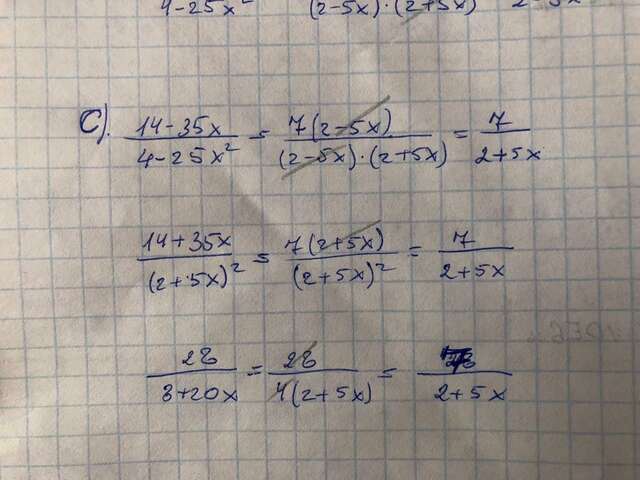 4-25x² (2-5x)·(2+5x) 2-5x
C). 14-35x / 4-25x² = 7(2-5x) / (2-5x)·(2+5x) = 7 / 2+5x
14+35x / (2+5x)² = 7(2+5x) / (2+5x)² = 7 / 2+5x
28 / 8+20x = 28 / 4(2+5x) = 7 / 2+5x